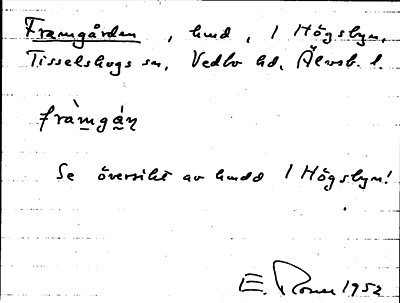 Framgården, hmd, 1 Högsbyn,
Tisselskogs sn, Vedbo hd, Älvsb. l.
fràmgán
Se översikt av hmdd 1 Högsbyn!
E. 1952